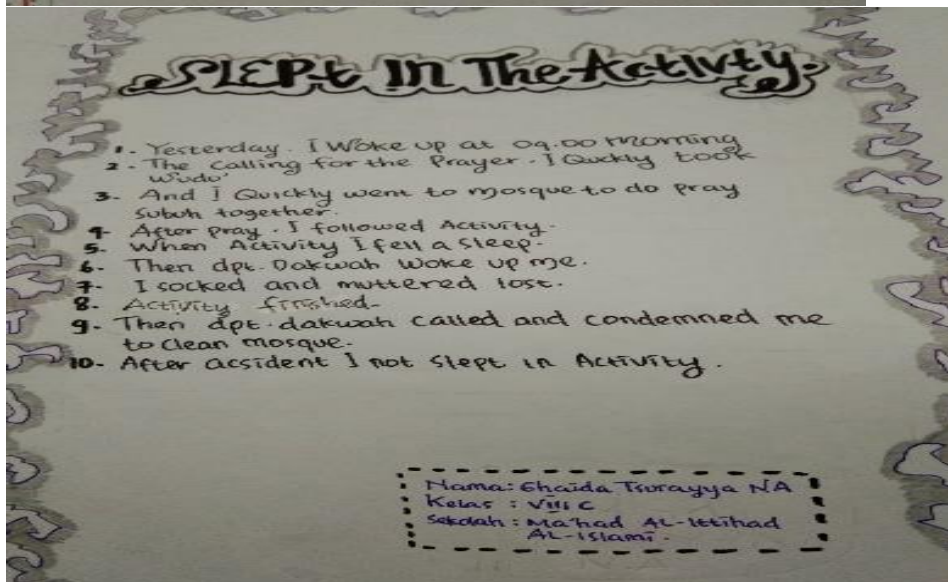 SLEPt In The Activty.
1. Yesterday. I Woke up at 09.00 morning
2. The calling for the Prayer. I Quckly took
wudu'
3. And I Quickly went to mosque to do pray
subuh together.
4- After pray. I followed Activity.
5. When Activity I fell a sleep.
6. Then dpt. Dakwah woke up me.
7- I socked and muttered lost.
8. Activity finished.
9. Then dpt. dakwah called and condemned me
to clean mosque.
10- After acsident I not slept in Activity.
Nama: Ghaida Tsurayya NA
Kelas : VIII C
Sekolah : Ma'had AL-Ittihad
AL-Islami.